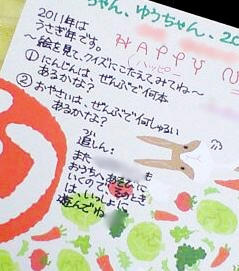 ちゃん、ゆうちゃん、20
HAPPY
(ハッピー
2011年は
うさぎ年です。
～絵を見て、クイズにこたえてみてね～
①にんじんは、ぜんぶで何本
あるかな?
②おやさいは、ぜんぶで何しゅるい
あるかな?
追しん:
また
おうちへあそびに
いくので、そのとき
は、いっしょに
遊んでね